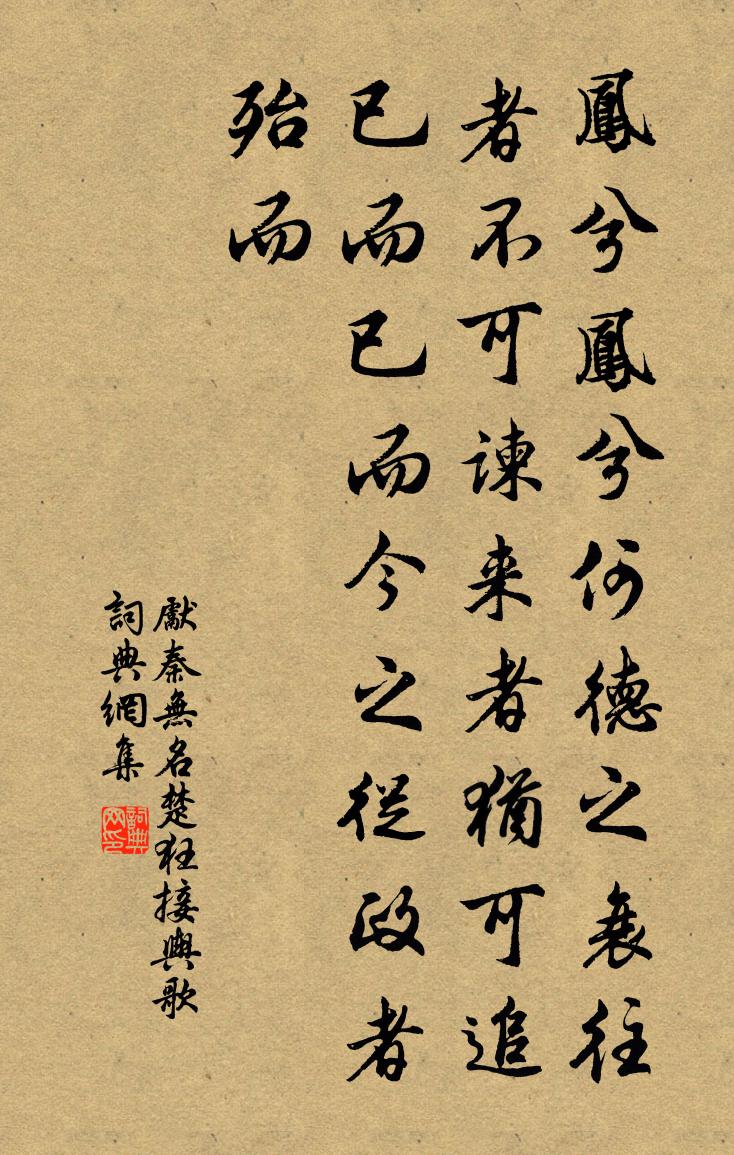 鳳兮鳳兮何德之衰往
者不可諫来者猶可追
已而已而今之從政者
殆而
獻秦無名楚狂接輿歌
詞典網集
詞典
网印